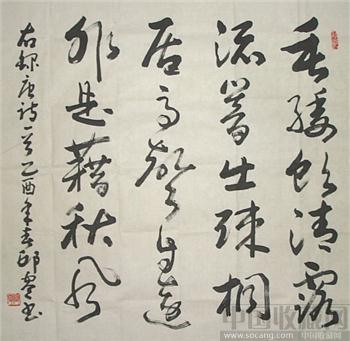 垂緌飲清露
流響出疎桐
居高聲自遠
非是藉秋風
右録唐詩一首乙酉年春邱書
中国收藏网
www.socang.com 中国收藏网